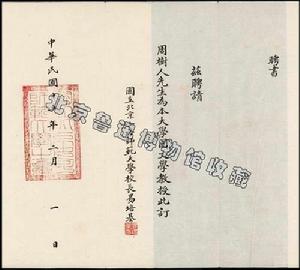 聘書
茲聘請
周樹人先生為本大學國文學教授此訂
國立北京 師範大學校長易培基
中華民國 年 二月 一日
北京鲁迅博物馆收藏